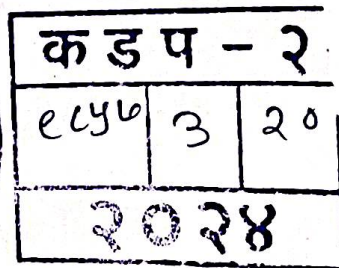 क ड प - २
९८५७ ३ २०
२०२४